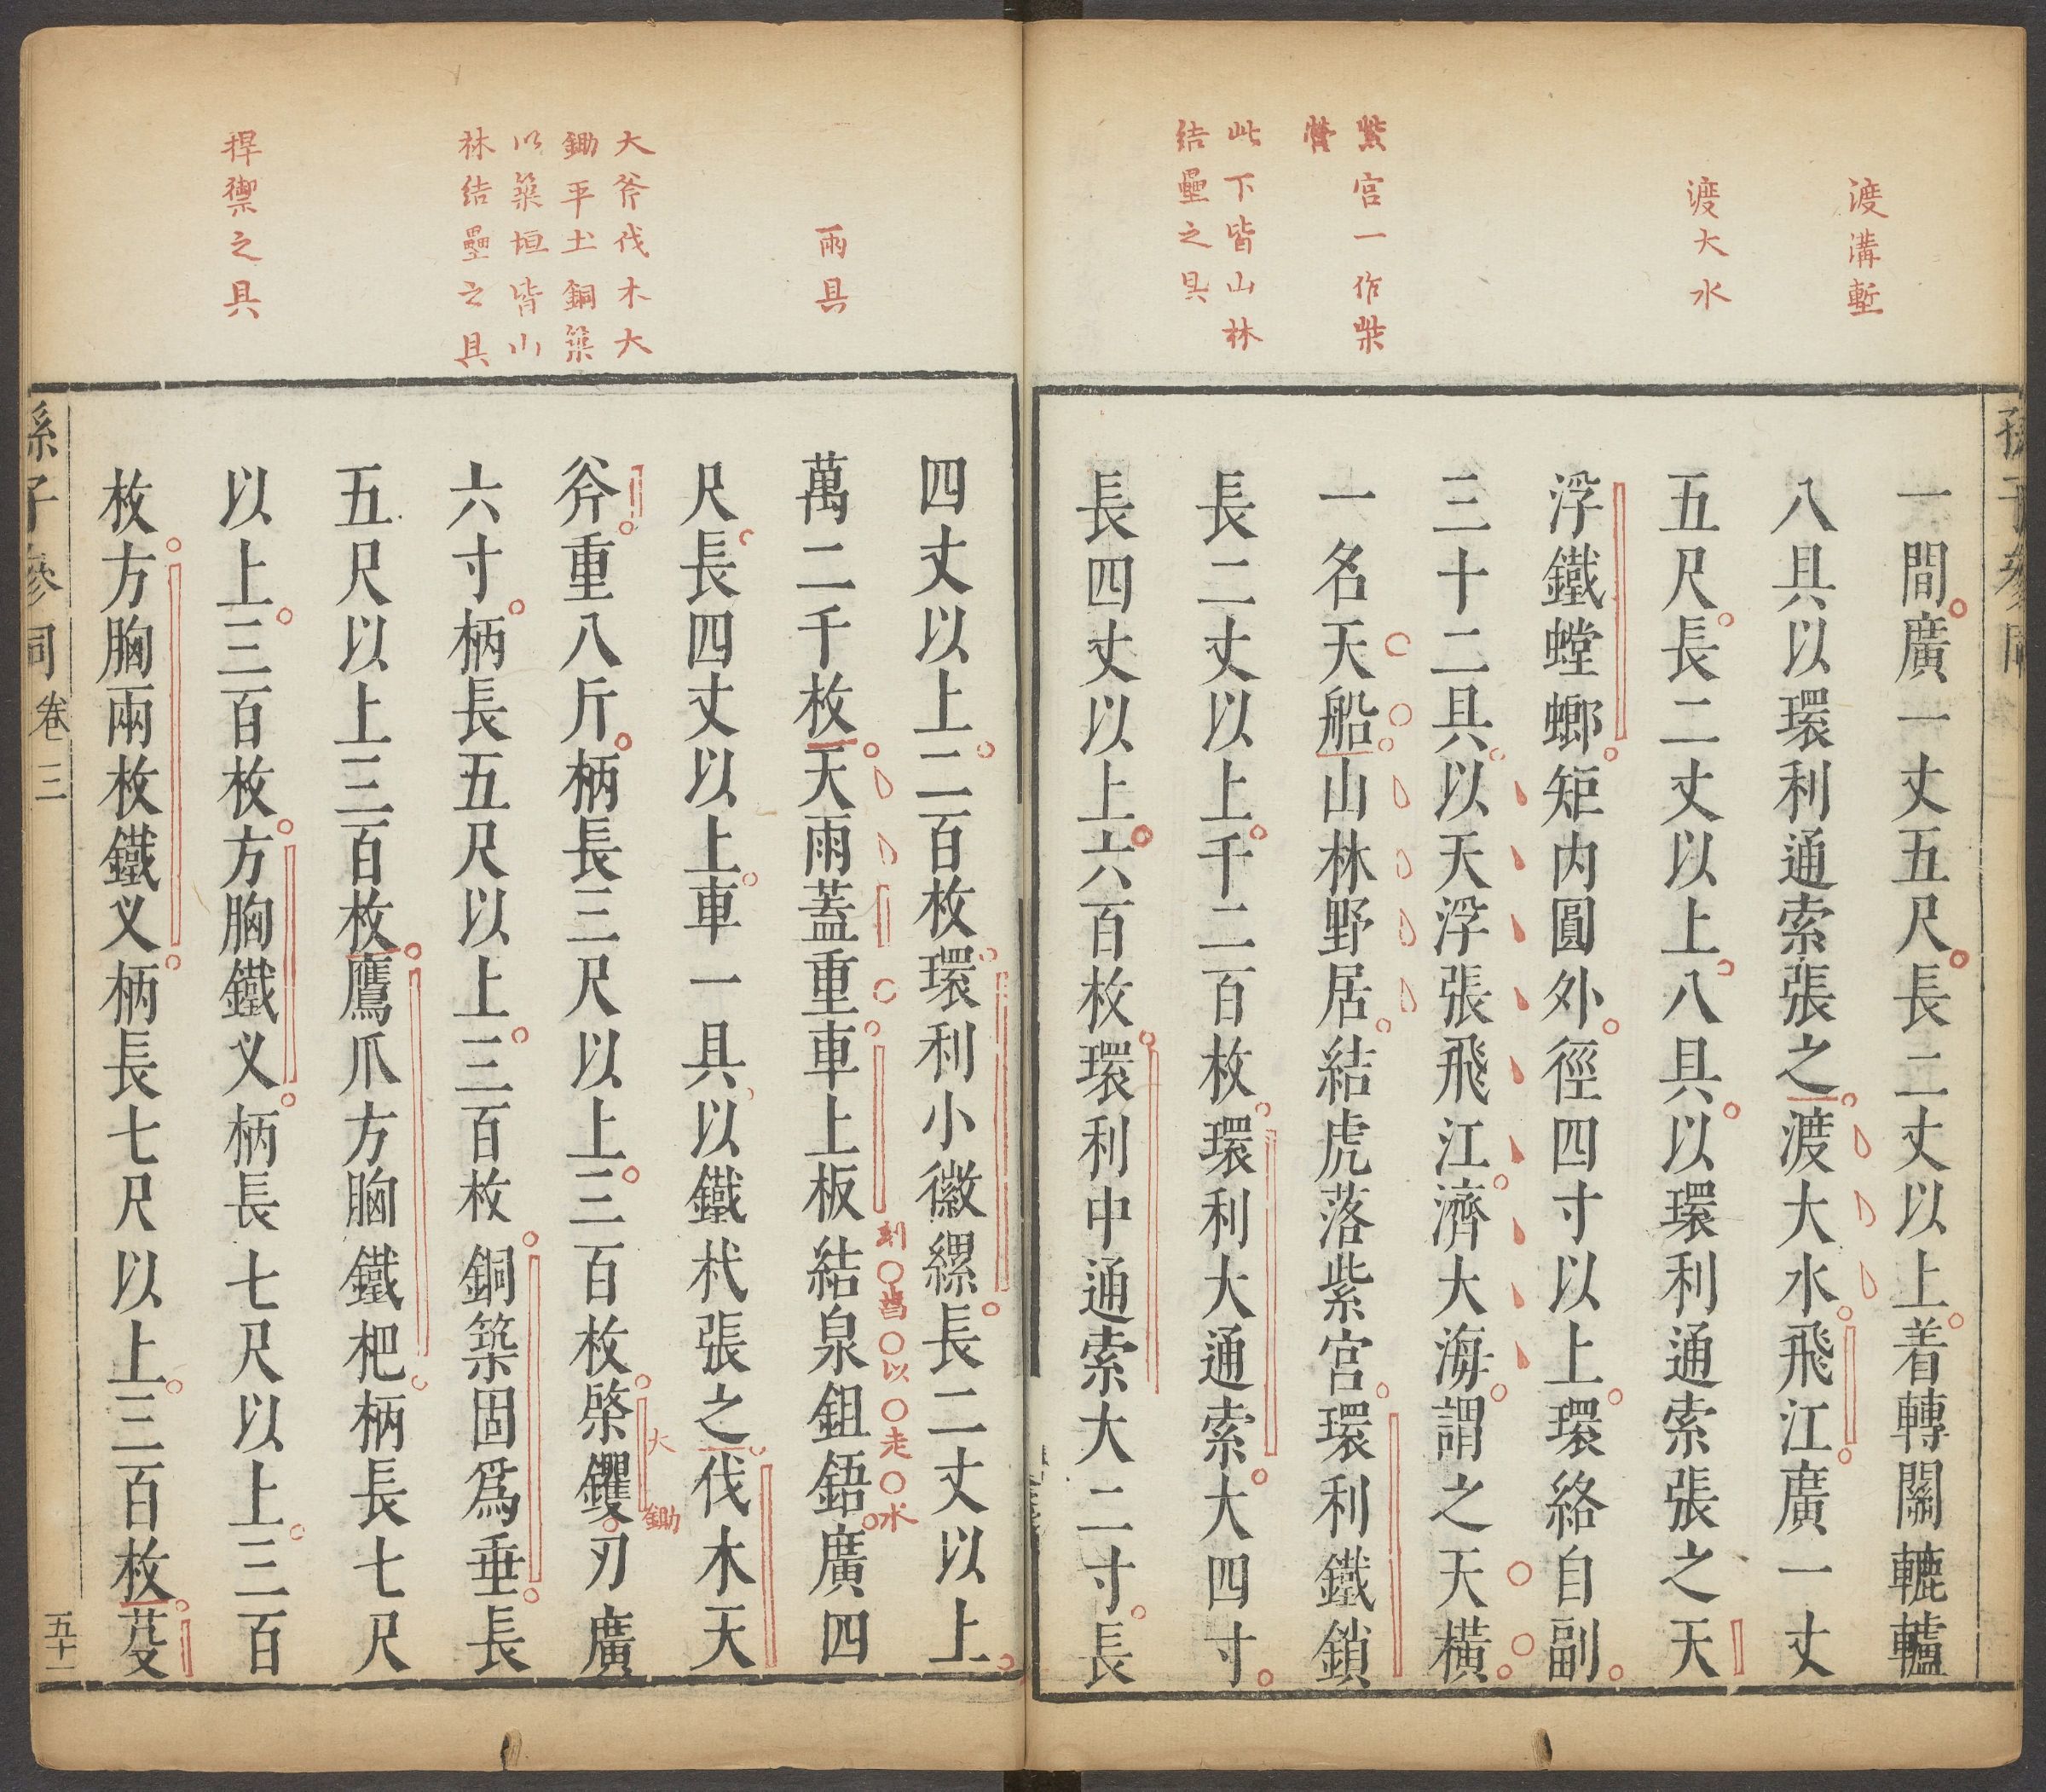 渡溝塹
渡大水
紫宮一作柴
營
此下皆山林
結壘之具
一間廣一丈五尺長二丈以上着轉關轆轤
八具以環利通索張之渡大水飛江廣一丈
五尺長二丈以上八具以環利通索張之天
浮鐵螳螂矩内圓外徑四寸以上環絡自副
三十二具以天浮張飛江濟大海謂之天橫
一名天船山林野居結虎落紫宮環利鐵鎖
長二丈以上千二百枚環利大通索大四寸
長四丈以上六百枚環利中通索大二寸長
雨具
大斧伐木大
鋤平土銅築
以築垣皆山
林結壘之具
捍禦之具
四丈以上二百枚環利小徽縲長二丈以上
萬二千枚天雨蓋重車上板結泉鉏鋙廣四
刻○萡○以○走○水
尺長四丈以上車一具以鐵杙張之伐木天
斧重八斤柄長三尺以上三百枚棨钁刃廣
大鋤
六寸柄長五尺以上三百枚銅築固爲垂長
五尺以上三百枚鷹爪方胸鐵杷柄長七尺
以上三百枚方胸鐵义柄長七尺以上三百
枚方胸兩枚鐵义柄長七尺以上三百枚芟
孫子參同卷三
五十一